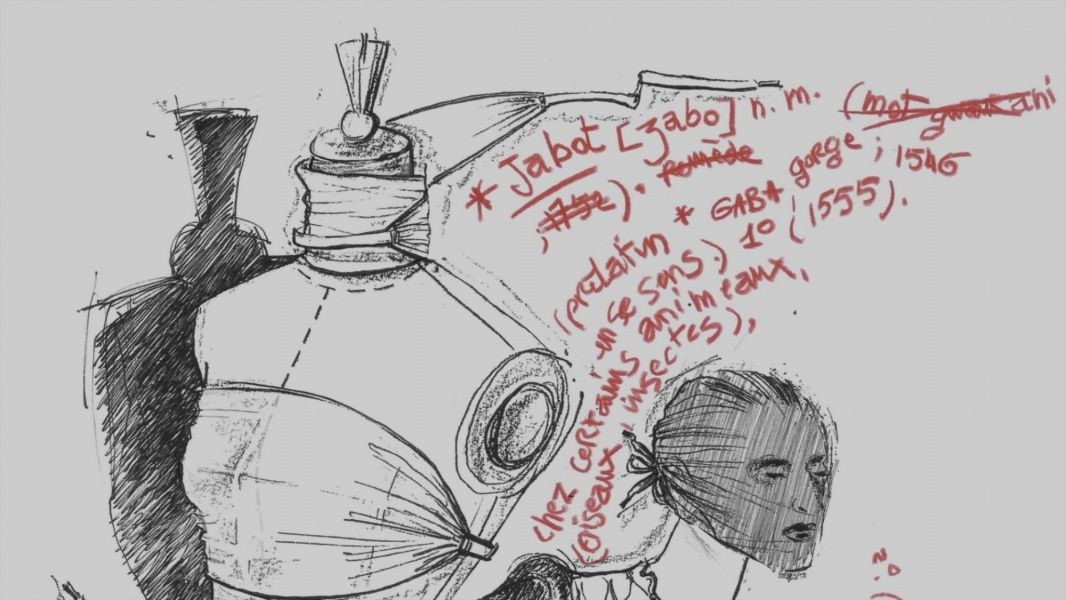 * Jabot [ʒabo] n.m. (mot
; 1752). Romède
* GABA gorge ; 1546
(prélatin
in se sens.) 1º (1555).
chez certains animeaux,
(oiseaux, insectes),